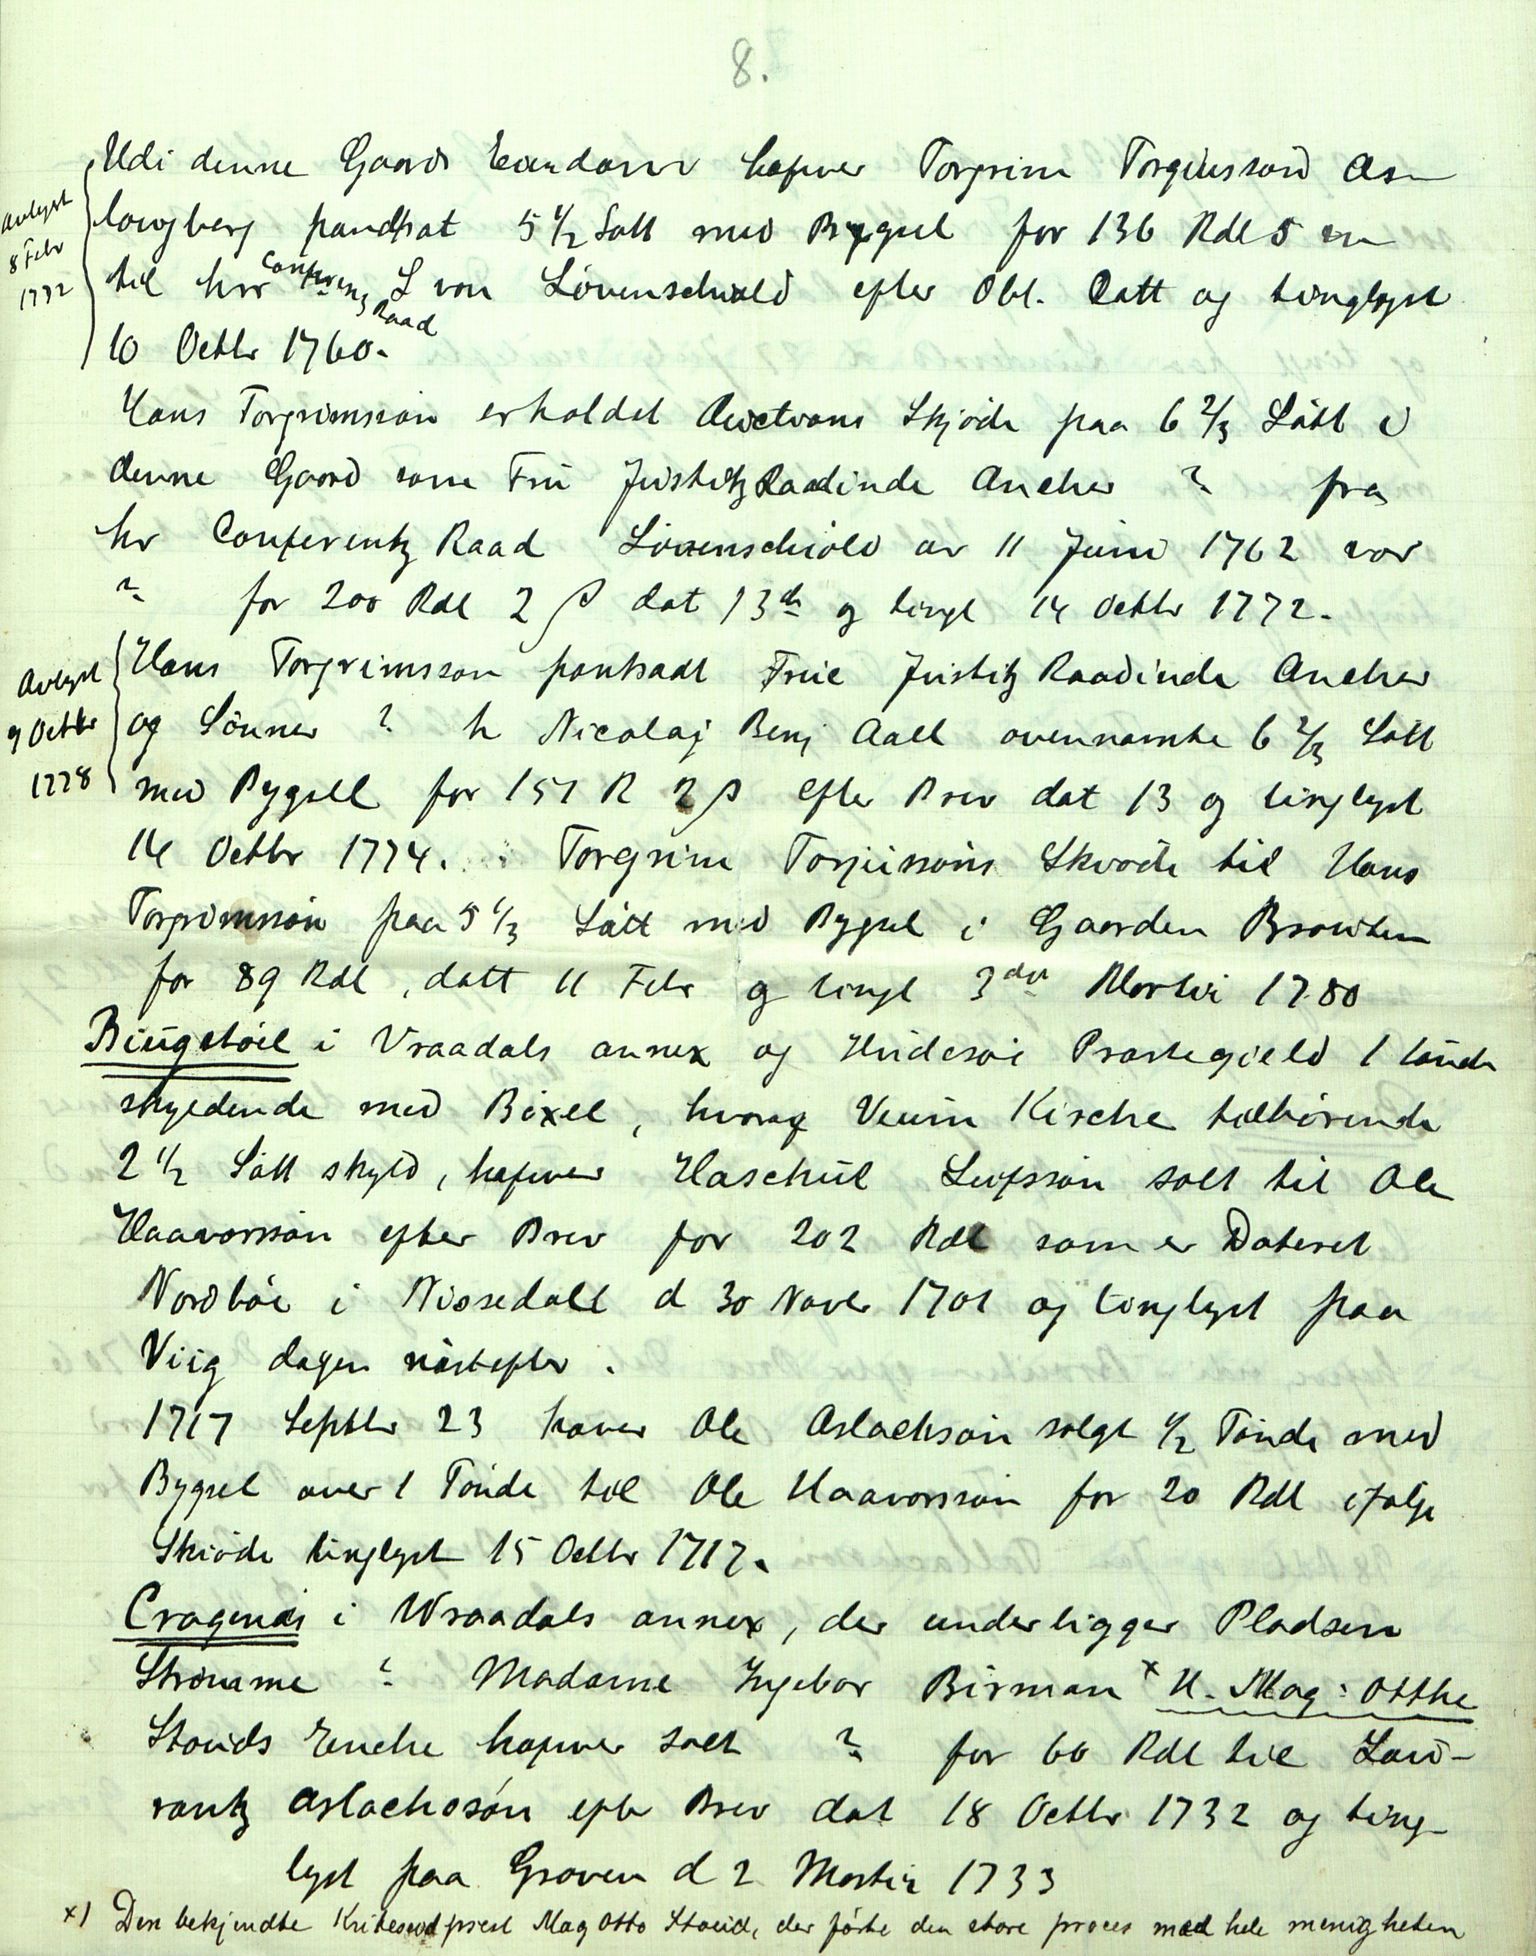 8.
Udi denne Gaards Eiendom hafver Torgrim Torgiussøn As-
lougberg pandsat 5 1/2 Sått med Bygsel for 136 Rdl 5
til hrr Conferenz Raad S von Løvenschiold efter Obl. Datt og tinglyst
10 Octbr 1760.
Avlyst
8 Febr
1772
Hans Torgrimssøn erholdet Auctions Skjøde paa 6 2/3 Sått i
denne Gaard som Fru Justitz Raadinde Ancher ? fra
hr Conferentz Raad Løvenschiold av 11 Juni 1762 vor
? for 200 Rdl 2 β dat 13de og tingl 14 Octbr 1772.
Hans Torgrimsson pantsadt Frue Justitz Raadinde Ancher
og Sønner ? h Nicolaj Benj Aall ovennamte 6 2/3 Sått
med Bygsell for 151 R 2 β efter Brev dat 13 og tinglyst
14 Octbr 1774. Torgrim Torjussøns Skiøde til Hans
Torgrimssøn paa 5 1/3 Sått med Bygsel i Gaarden Brouten
for 89 Rdl, datt 11 Febr og tingl 3die Martii 1780
Avlyst
9 Octbr
1778
Biugstøil i Vraadals annex og Hvidesøi Præstegield 1 tønde
skyldende med Bøxel, hvoraf Veum Kirche tilhørende
2 1/2 Sått skyld, hafver Haschul Leifssøn solt til Ole
Haavorssøn efter Brev for 202 Rdl som er Dateret
Nordbøe i Nissedall d 30 Novbr 1701 og tinglyst paa
Viig dagen nåstefter.
1717 Septbr 23 haver Ole Aslachsøn solgt 1/2 Tønde med
Bygsel over 1 Tønde til Ole Haavorssøn for 20 Rdl ifølge
Skiøde tinglyst 15 Octbr 1717.
Cragenæs i Wraadals annex, der underligger Pladsen
Strømme ? Madame Ingebor Birman x H. Mag: Otthe
Stouds Enche hafver solt ? for 66 Rdl til Lau-
rantz Aslachosøn efter Brev dat 18 Octbr 1732 og ting-
lyst paa Groven d 2 Martii 1733
x) Den bekjendte Kviteseidprest Mag Otto Stoud, der førte den store proces med hele menigheten